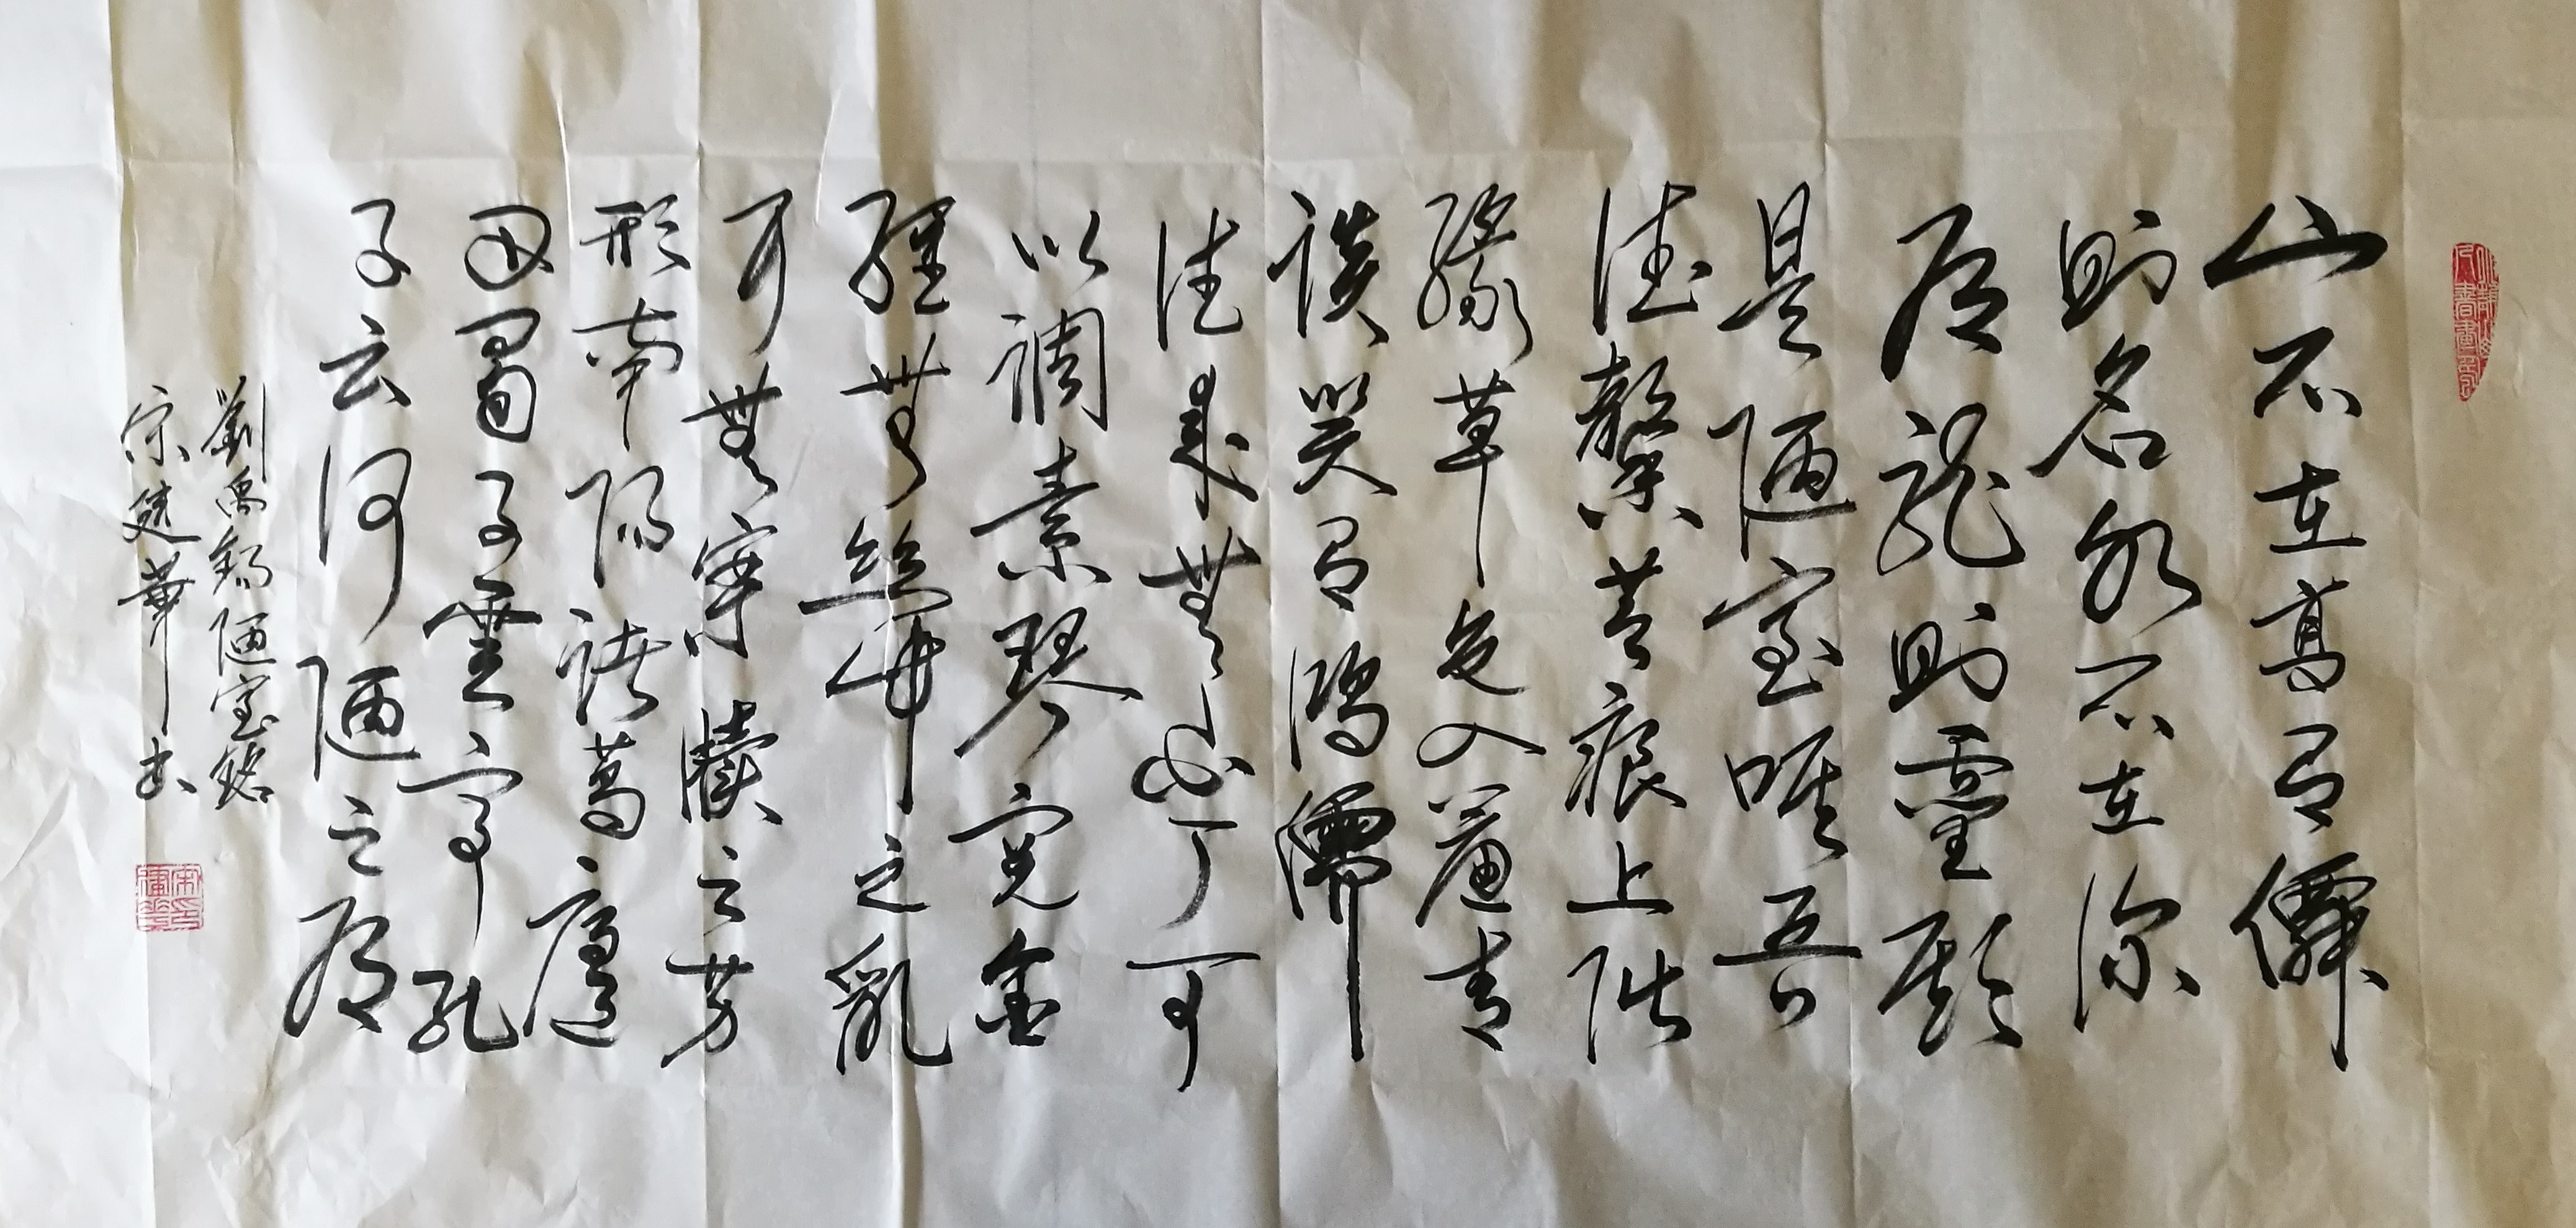 山不在高有僊
則名水不在深
有龍則靈斯
是陋室唯吾
德馨苔痕上階
綠草色入簾青
談笑有鴻儒
往來無白丁可
以調素琴閱金
經無絲竹之亂
耳無案牘之勞
形南陽諸葛廬
西蜀子雲亭孔
子云何陋之有
劉禹錫陋室銘
宋建華书